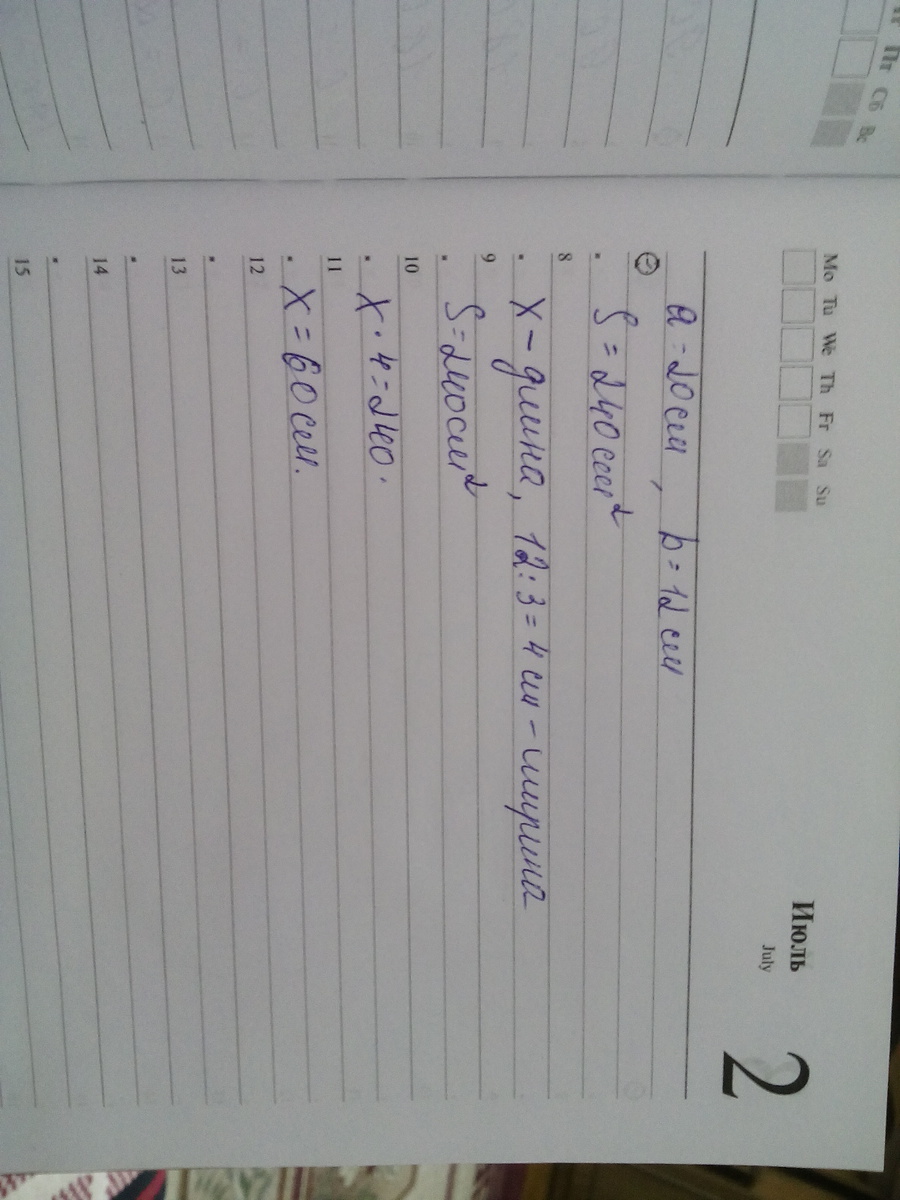 Пт Сб Вс
Mo Tu We Th Fr Sa Su
Июль
July
2
a = 20 см, b = 12 см
S = 240 см²
8
x – длина, 12:3 = 4 см – ширина
9
S = 240 см²
10
x · 4 = 240.
11
x = 60 см.
12
13
14
15